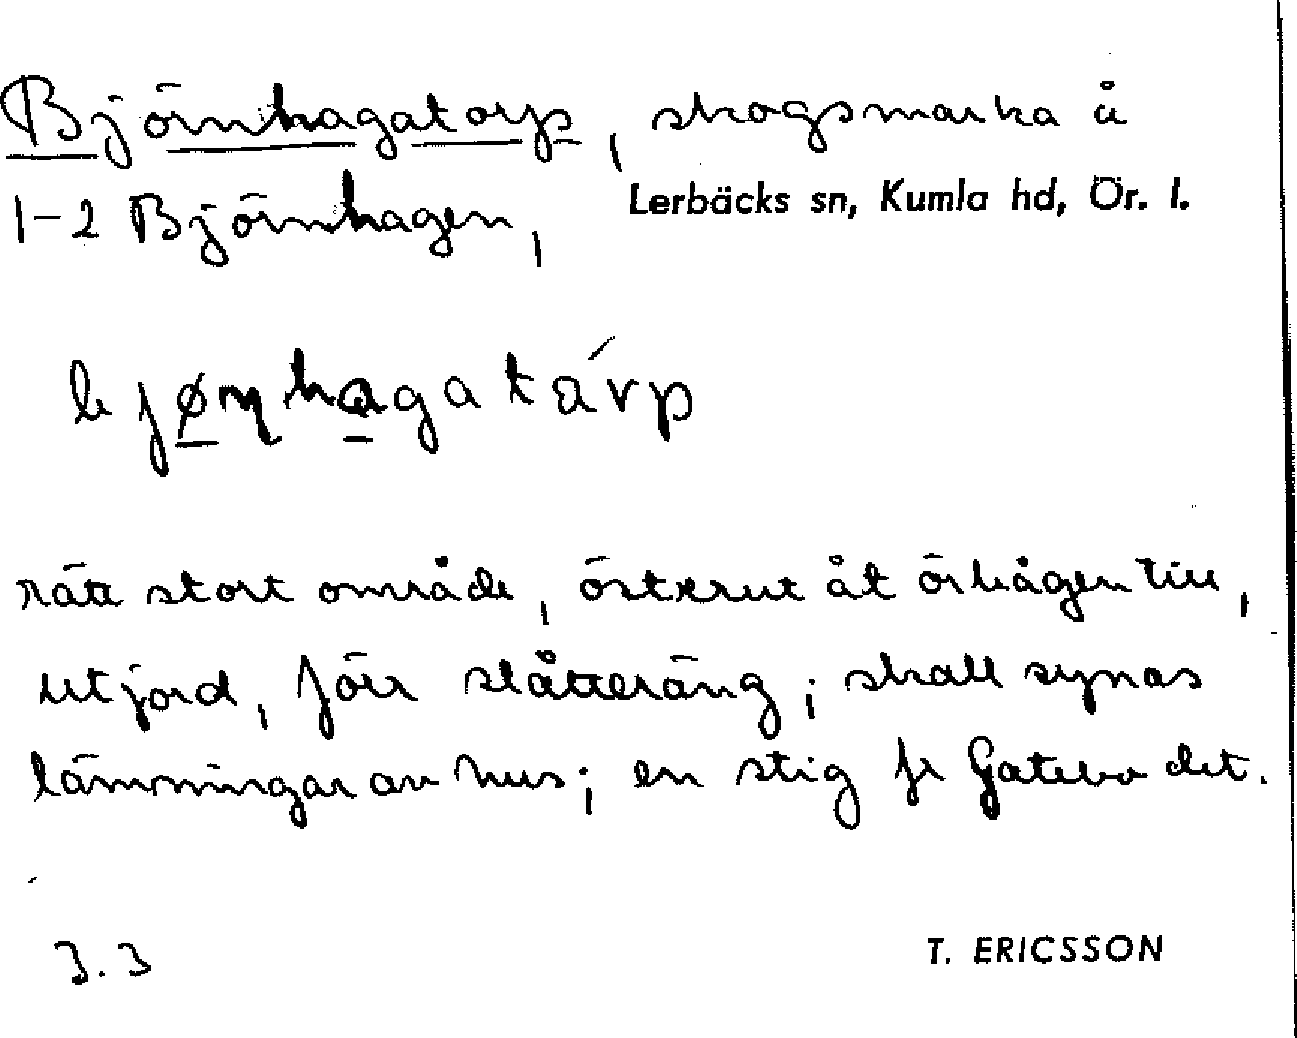 Björnhagatorp, skogsmarka å
1-2 Björnhagen, Lerbäcks sn, Kumla hd, Ör. l.
bjøṇhagatárp
rätt stort område, österut åt örhågen till,
utjord, förr slåtteräng; skall synas
lämningar av hus; en stig fr Gatebo dit.
3.3 T. ERICSSON